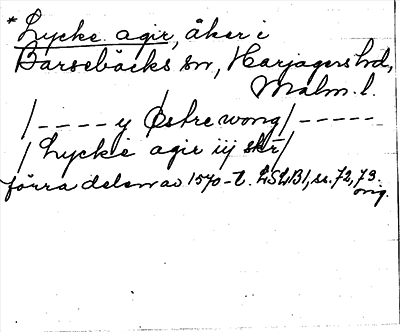 *Lycke agir, åker i
Barsebäcks sn, Harjagers hd,
Malm. l.
/ - - - - y Østre wong / - - - - -
/ Lycke agir iij skr /
förra delen av 1570-t. LSLB1, ss. 72, 73.
orig.